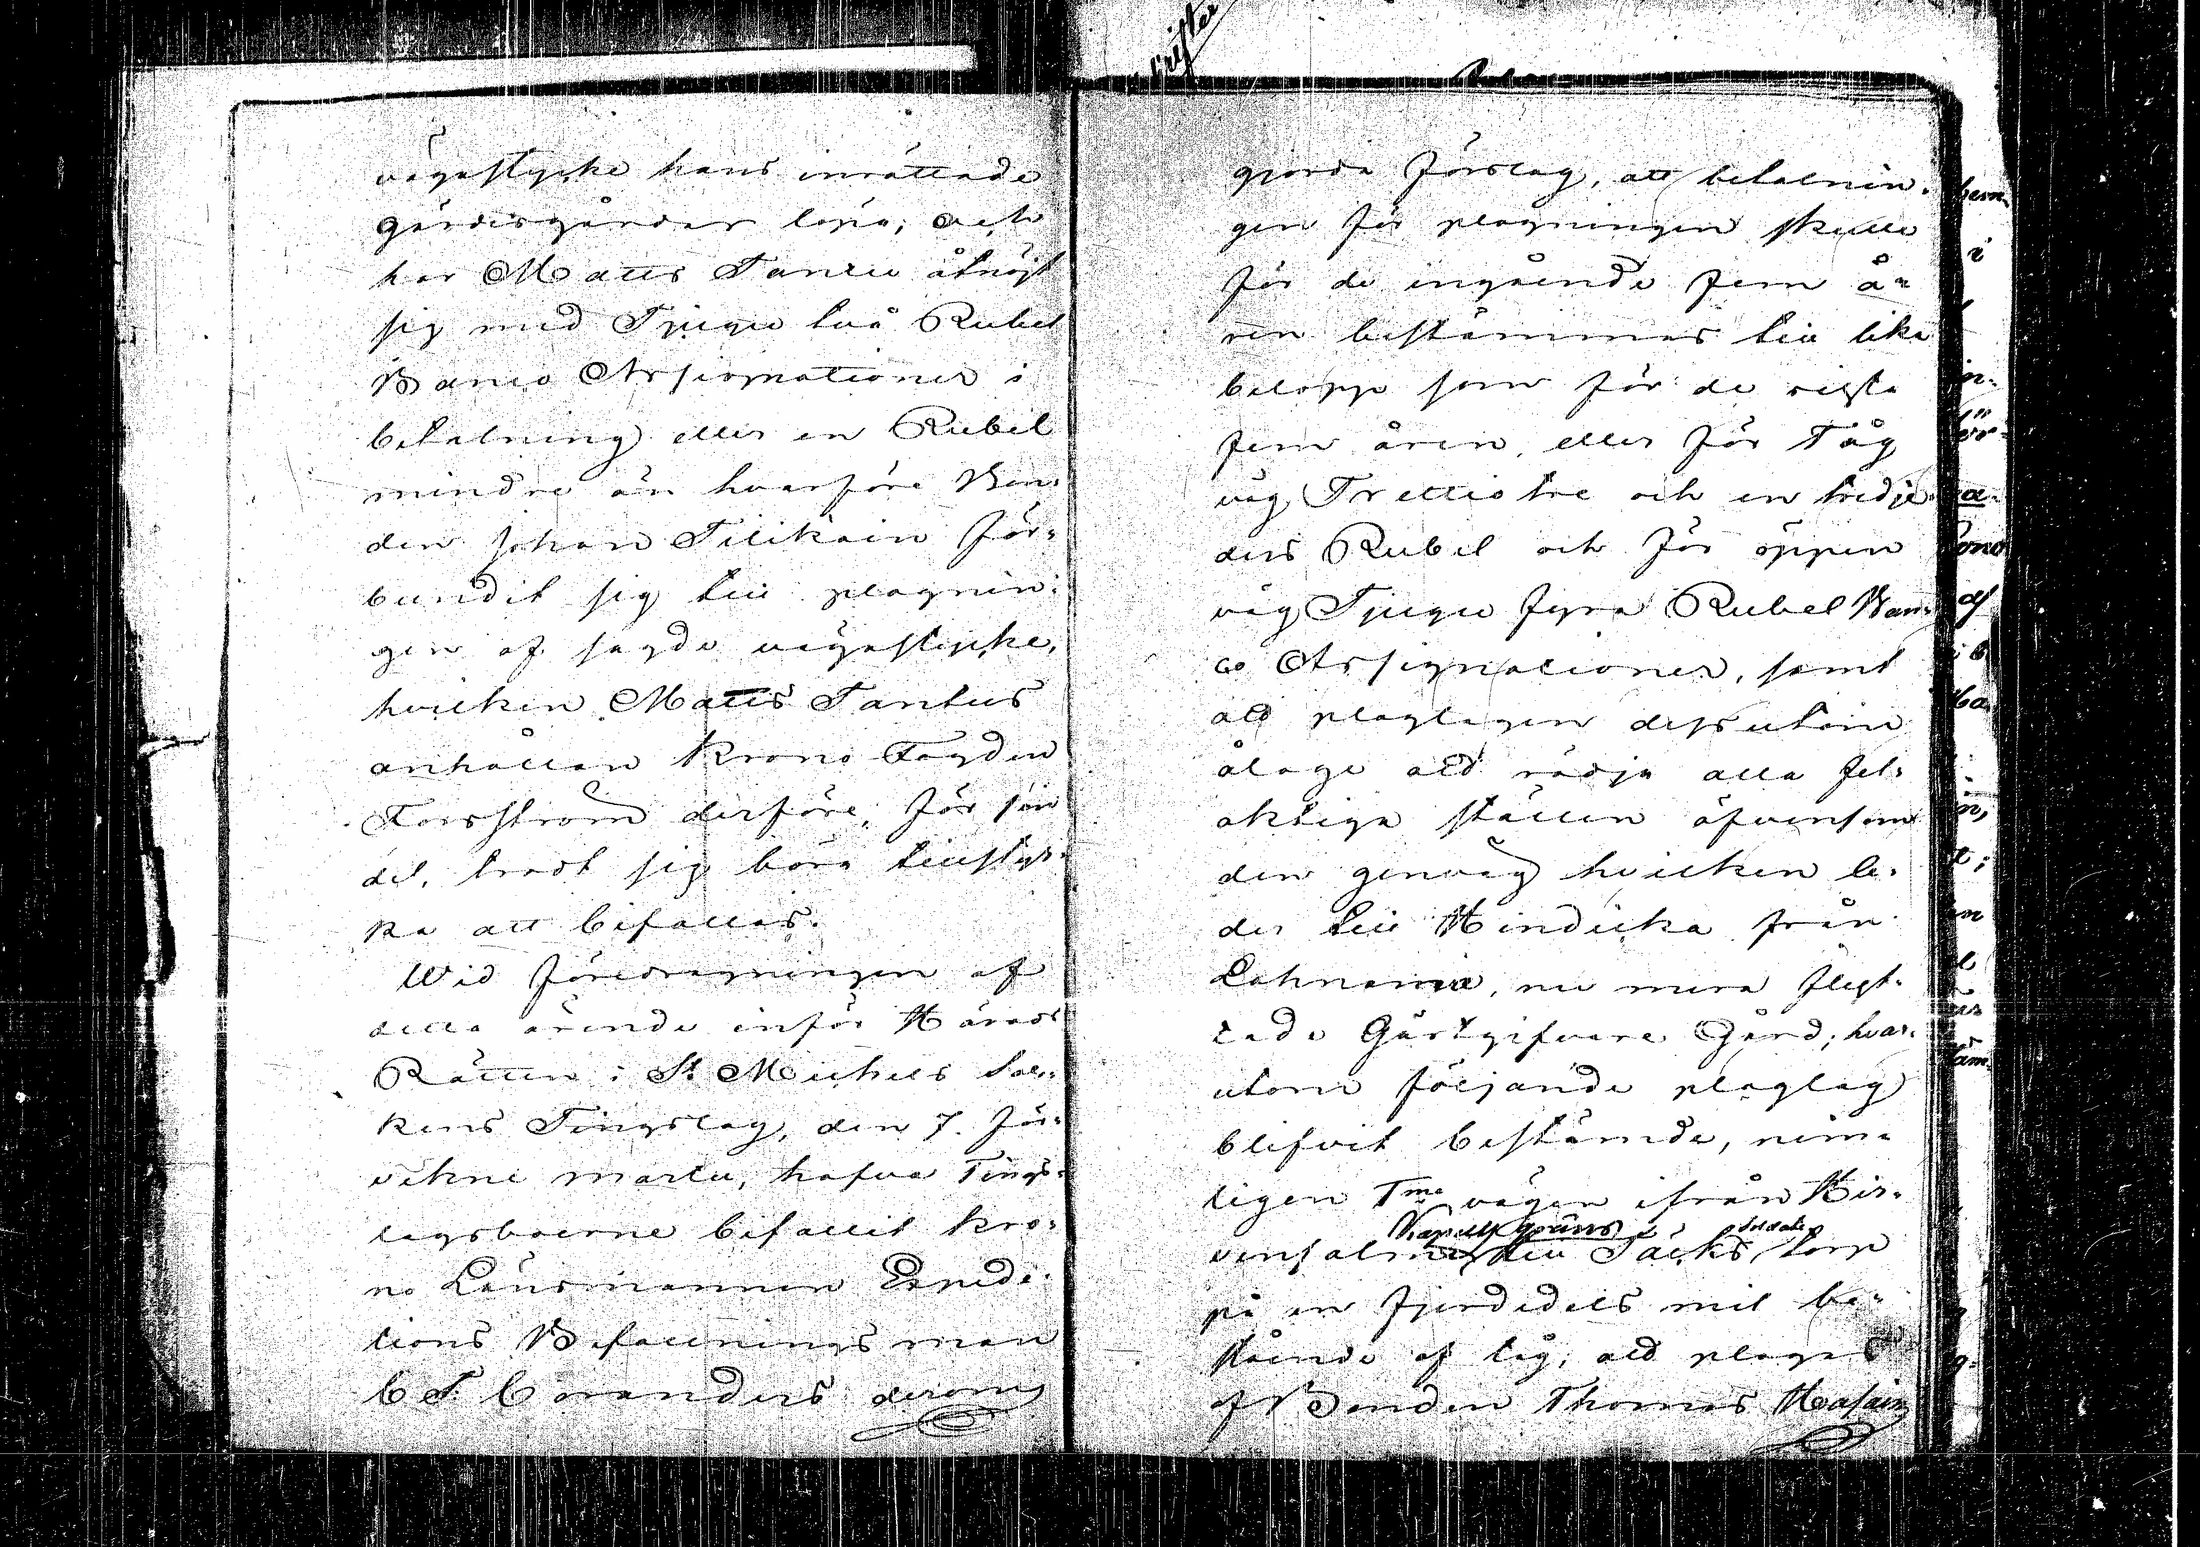 vägastycke hans inrättade
gärdesgårdar löpa; och
har Matts Tantu åtnöjt
sig med Tjugu två Rubel
Banco Assignationer i
betalning eller en Rubel
mindre än hvarföre Bon-
den Johan Tilikain för-
bundit sig till plognin-
gen af sagde vägastycke,
hvilken Matts Tantus
anhållan Krono Fogden
Forsström derföre, för sin
del, trodt sig böra tillstyr-
ka att bifallas.
Wid föredragningen af
detta ärende inför Härads
Rätten i St Michels Soc-
kens Tingslag, den 7. för-
vekne martii, hafva Tings-
lagsboerne bifallit Kro-
no Länsmannen Expedi-
tions Befallningsman
C F Coranders derom
gjorda förslag, att betalnin-
gen för plogningen skulle
för de ingående fem å-
ren bestämmas till lika
belopp som för de sista
fem åren, eller för Tåg
väg Trettiotre och en tredje-
dels Rubel och för öppen
väg Tjugu fyra Rubel Ban-
co Assignationer, samt
att ploglagen dessutom
ålage att rödja alla fel-
aktiga ställen äfvensom
den genväg hvilken le-
der till Hindicka från
Lahnaniemi, nu mera flyt-
tade Gästgifvare Gård; hvar-
utom följande ploglag
blifvit bestämde, nem-
ligen Tmo vägen ifrån Hir-
Kapells gräns soldats
vensalmi till Säcks torp
på en fjerdedels mil be-
stående af tåg, att plogas
af Bonden Thomas